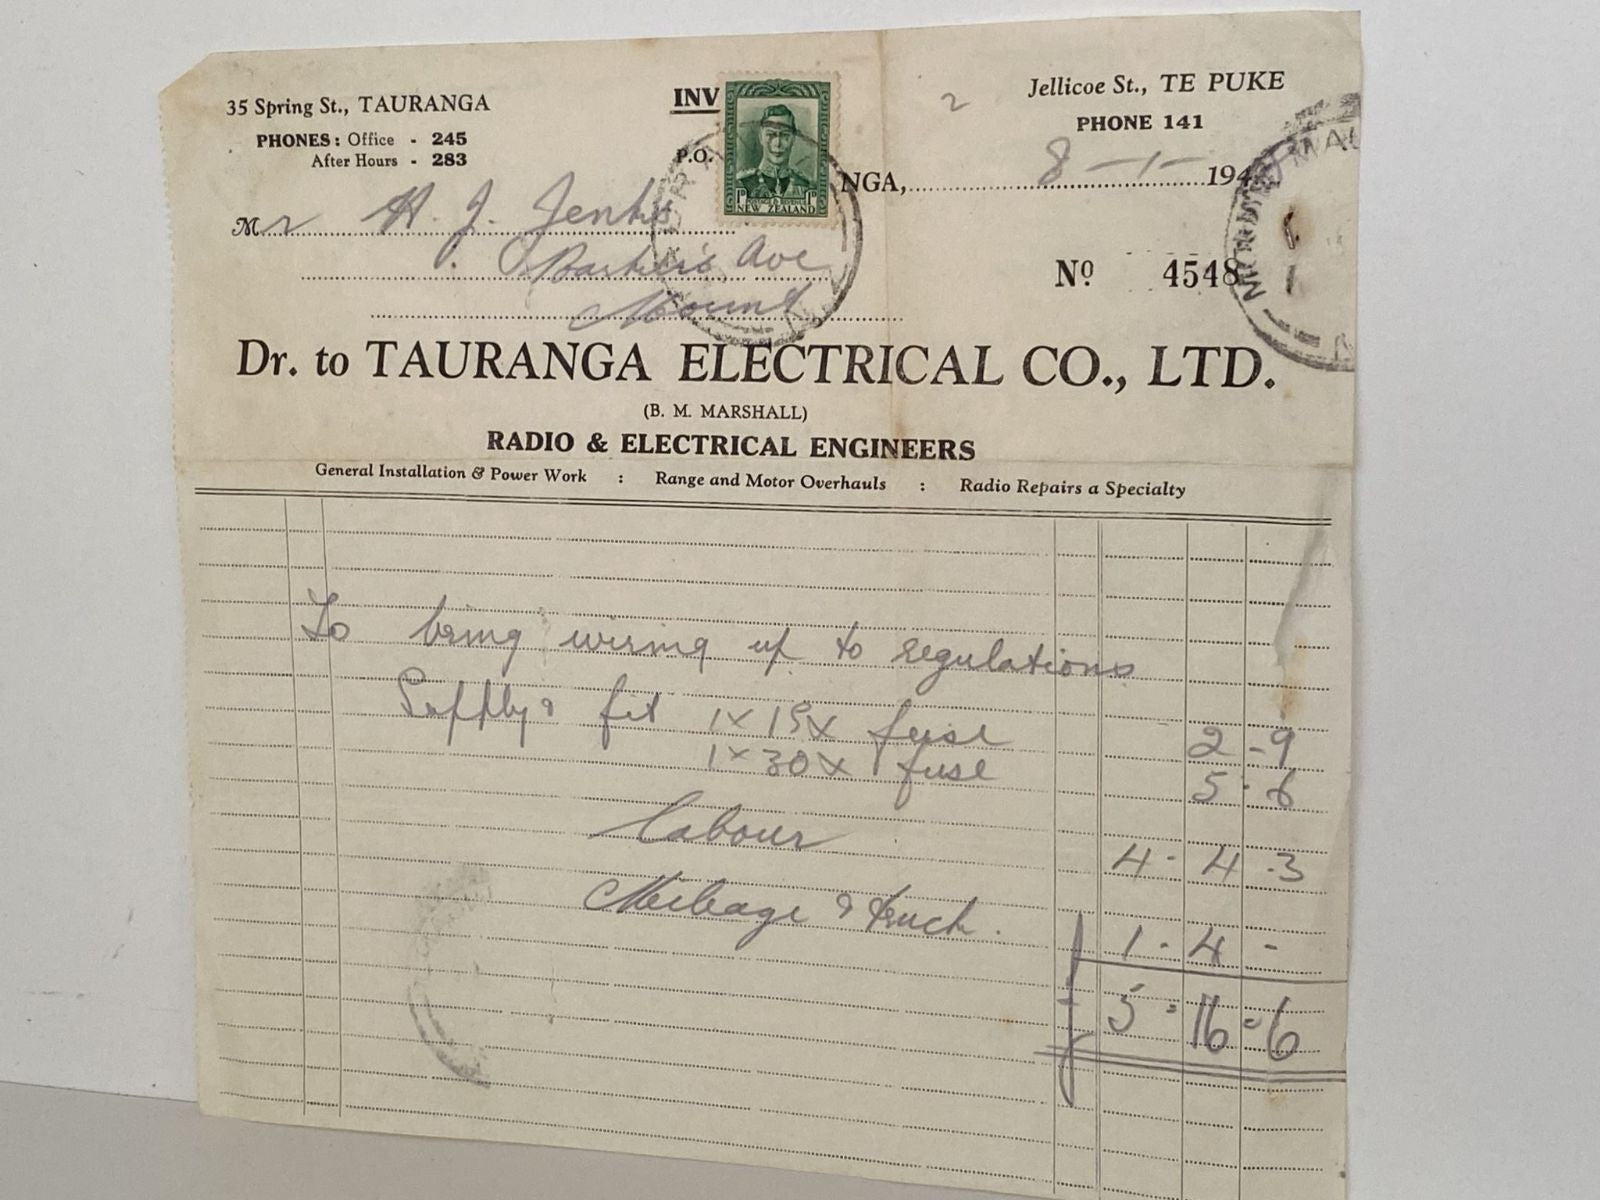 35 Spring St., TAURANGA
PHONES: Office - 245
After Hours - 283
INV
P.O.
1D 1D
POSTAGE & REVENUE
NEW ZEALAND
2
Jellicoe St., TE PUKE
PHONE 141
NGA, 8-1-194
Mr H. J. Jenks
Ave
Mount
No 4548
Dr. to TAURANGA ELECTRICAL CO., LTD.
(B. M. MARSHALL)
RADIO & ELECTRICAL ENGINEERS
General Installation & Power Work : Range and Motor Overhauls : Radio Repairs a Specialty
To bring wiring up to regulations
Supply & fit 1 x 15x fuse 2-9
1 x 30x fuse 5-6
Labour 4-4-3
Mileage & truck. 1-4-
£ 5=16=6